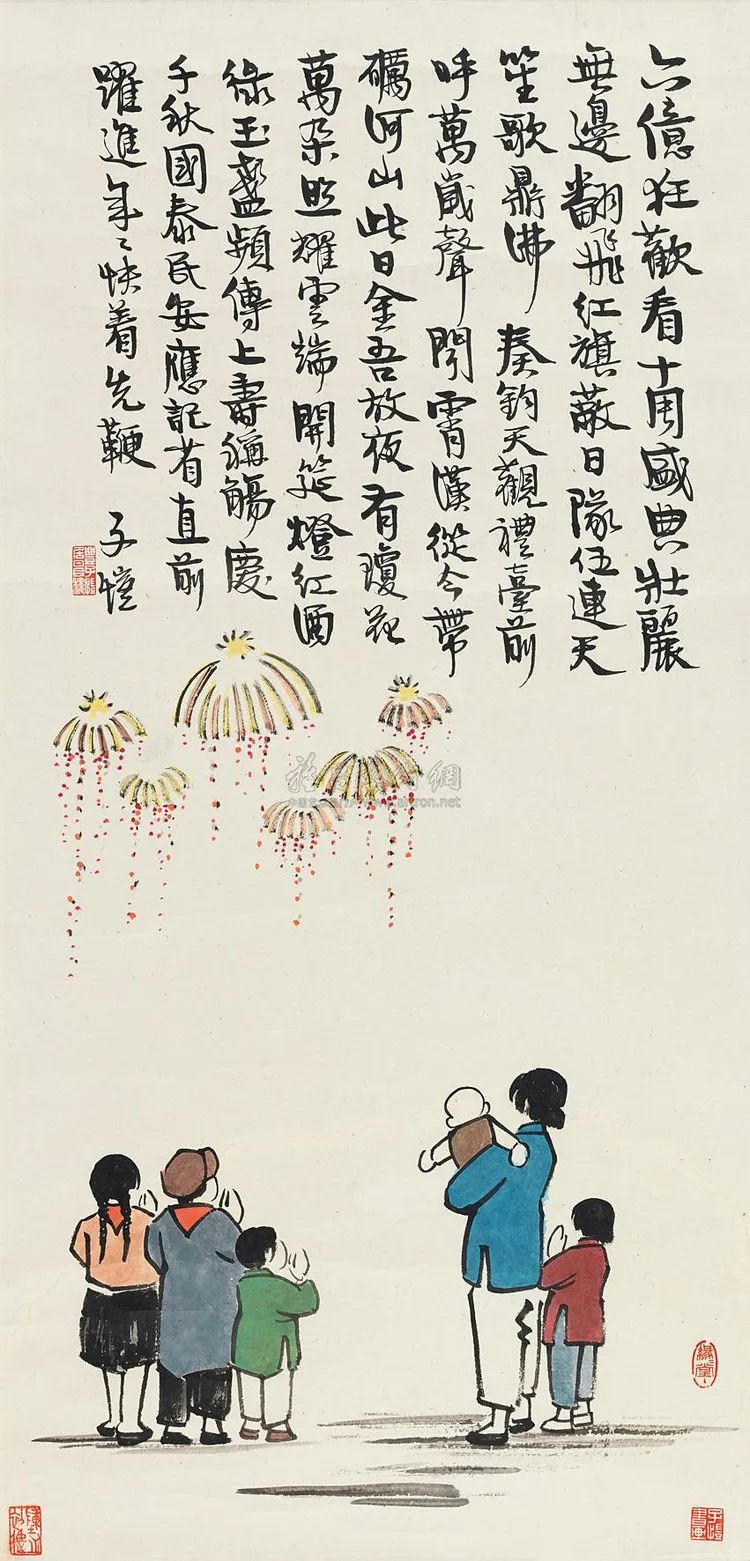 六億狂歡看十周盛典壯麗
無邊翻飛紅旗蔽日隊伍連天
笙歌鼎沸奏鈞天觀禮臺前
呼萬歲聲聞霄漢從今帶
礪河山此日金吾放夜有瓊花
萬朵照耀雲端開筵燈紅酒
綠玉盞頻傳上壽稱觴慶
千秋國泰民安應記省直前
躍進年々快着先鞭 子愷